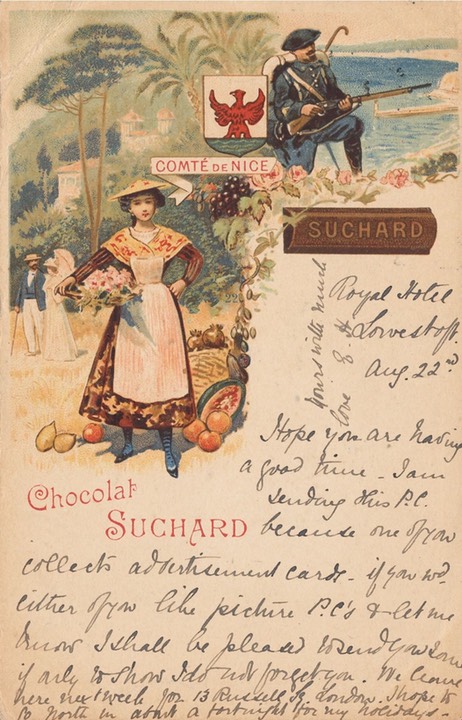 COMTÉ DE NICE
SUCHARD
Royal Hotel
Lowestoft.
Aug. 22nd
Hope you are having
a good time - I am
sending this P.C.
because one of you
collects advertisement cards - if you wd
either of you like picture P.C's & let me
know I shall be pleased to send you some
if only to show I do not forget you. We leave
here next week for 13 Russell Sq. London. I hope to
go North in about a fortnight for my holidays -
Yours with much
love
Chocolat
SUCHARD